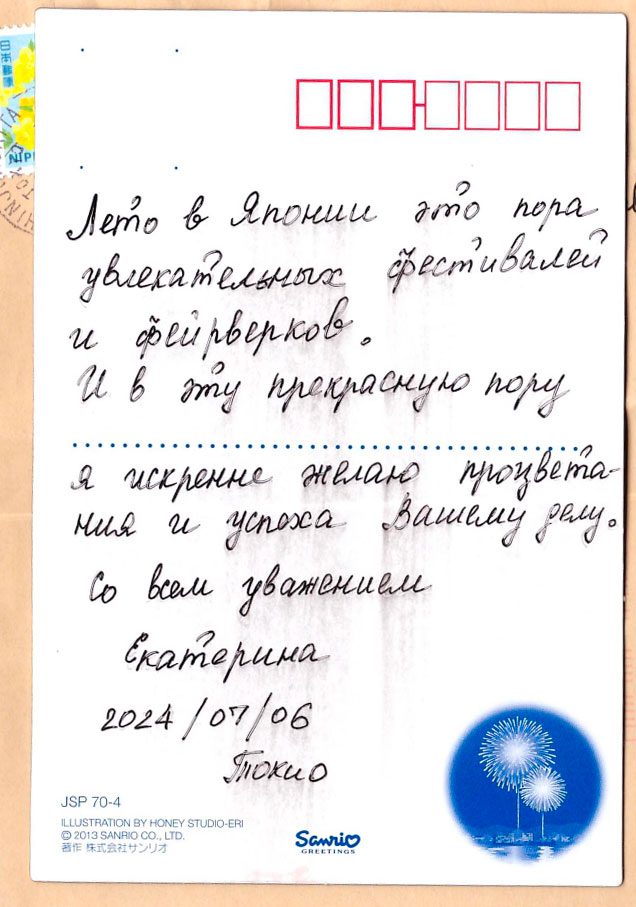 日本郵便
NIPP
Лето в Японии это пора
увлекательных фестивалей
и фейрверков.
И в эту прекрасную пору
я искренне желаю процвета-
ния и успеха Вашему делу.
Со всем уважением
Екатерина
2024/07/06
Токио
JSP 70-4
ILLUSTRATION BY HONEY STUDIO-ERI
© 2013 SANRIO CO., LTD.
著作 株式会社サンリオ
Sanrio
GREETINGS